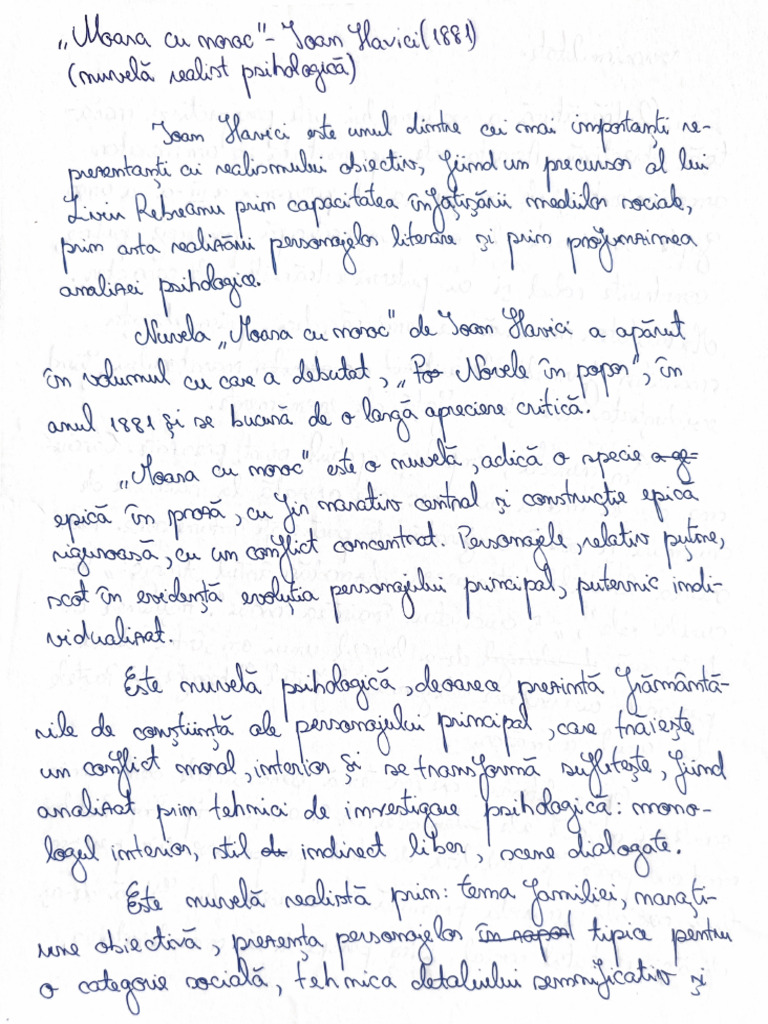 „Moara cu noroc" - Ioan Slavici (1881)
(nuvelă realist psihologică)
Ioan Slavici este unul dintre cei mai importanti re-
prezentanti ai realismului obiectiv, fiind un precursor al lui
Liviu Rebreanu prin capacitatea înfațișării mediilor sociale,
prin arta realizării personajelor literare și prin profunzimea
analizei psihologice.
Nuvela „Moara cu noroc" de Ioan Slavici a apărut
în volumul cu care a debutat, „Novele în popor", în
anul 1881 și se bucură de o larga apreciere critică.
„Moara cu noroc" este o nuvelă, adică o specie
epică în proză, cu fir narativ central și constructie epică
riguroasă, cu un conflict concentrat. Personajele, relativ puține,
scot în evidență evolutia personajului principal, puternic indi-
vidualizat.
Este nuvelă psihologică, deoarece prezintă frământă-
rile de conștiință ale personajului principal, care trăiește
un conflict moral, interior și se transformă sufletește, fiind
analizat prin tehnici de investigare psihologică: mono-
logul interior, stil indirect liber, scene dialogate.
Este nuvelă realistă prin: tema familiei, narați-
une obiectivă, prezența personajelor tipice pentru
o categorie socială, tehnica detaliului semnificativ și